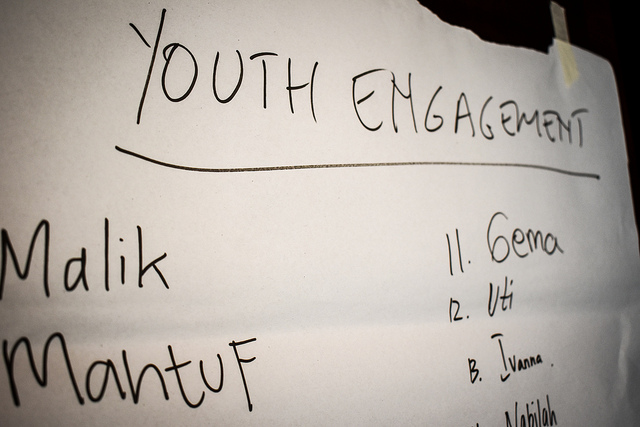 YOUTH ENGAGEMENT
Malik
Mahtuf
11. Gema
12. Uti
13. Ivanna.
Nabilah